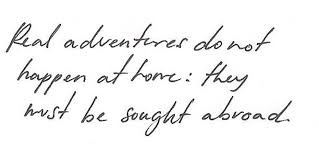 Real adventures do not
happen at home: they
must be sought abroad.